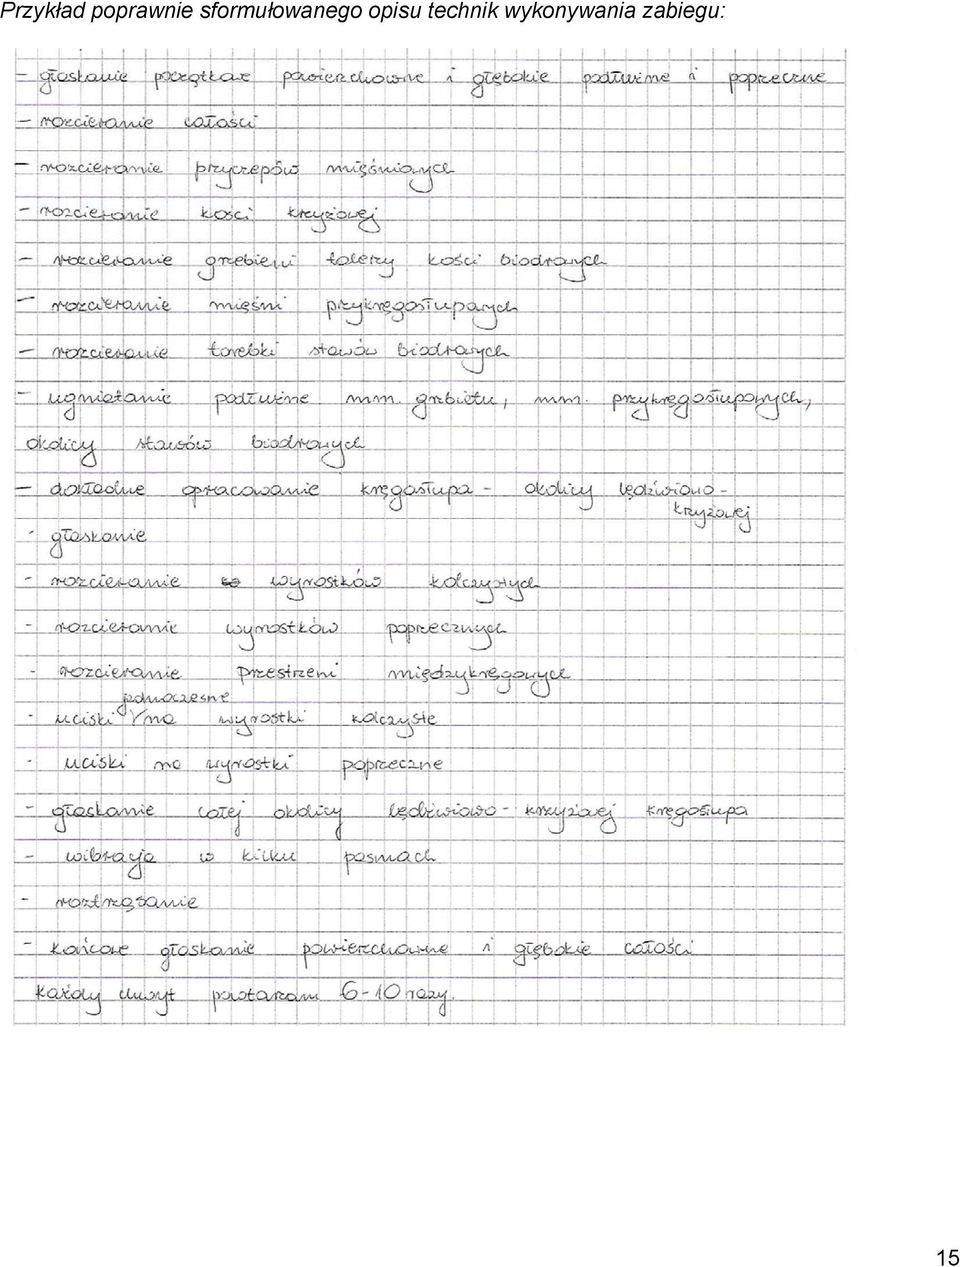 Przykład poprawnie sformułowanego opisu technik wykonywania zabiegu:
- głaskanie początkowe powierzchowne i głębokie podłużne i poprzeczne
- rozcieranie całości
- rozcieranie przyczepów mięśniowych
- rozcieranie kości krzyżowej
- rozcieranie grzebieni talerzy kości biodrowych
- rozcieranie mięśni przykręgosłupowych
- rozcieranie torebki stawów biodrowych
- ugniatanie podłużne mm. grzbietu, mm. przykręgosłupowych,
okolicy stawów biodrowych
- dokładne opracowanie kręgosłupa - okolicy lędźwiowo-
krzyżowej
- głaskanie
- rozcieranie wyrostków kolczystych
- rozcieranie wyrostków poprzecznych
- rozcieranie przestrzeni międzykręgowych
jednoczesne
- uciski na wyrostki kolczyste
- uciski na wyrostki poprzeczne
- głaskanie całej okolicy lędźwiowo-krzyżowej kręgosłupa
- wibracja w kilku pasmach
- roztrząsanie
- końcowe głaskanie powierzchowne i głębokie całości
każdy chwyt powtarzam 6-10 razy.
15